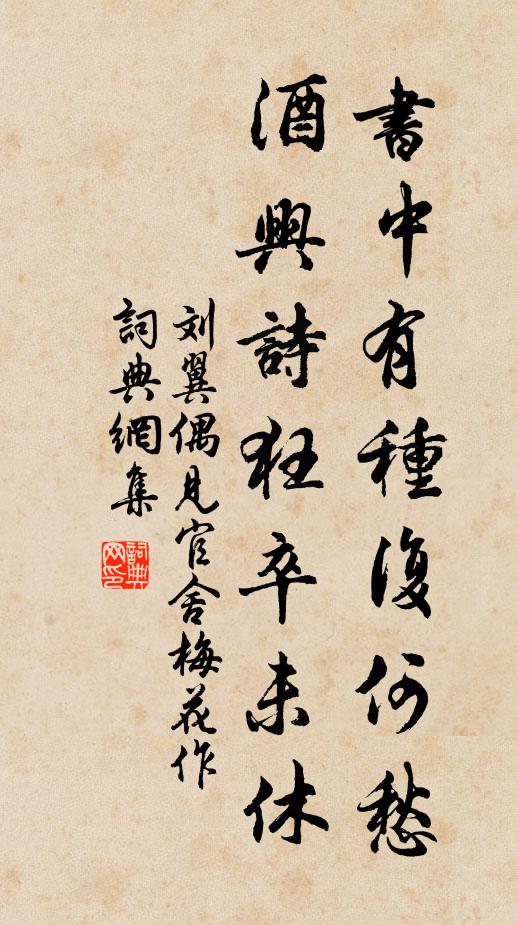 書中有種復何愁
酒興詩狂卒未休
刘翼偶見官舍梅花作
詞典網集
詞典網印